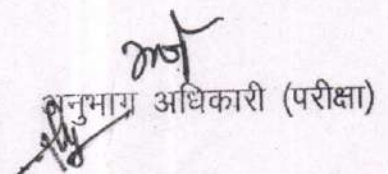 अनुभाग अधिकारी (परीक्षा)